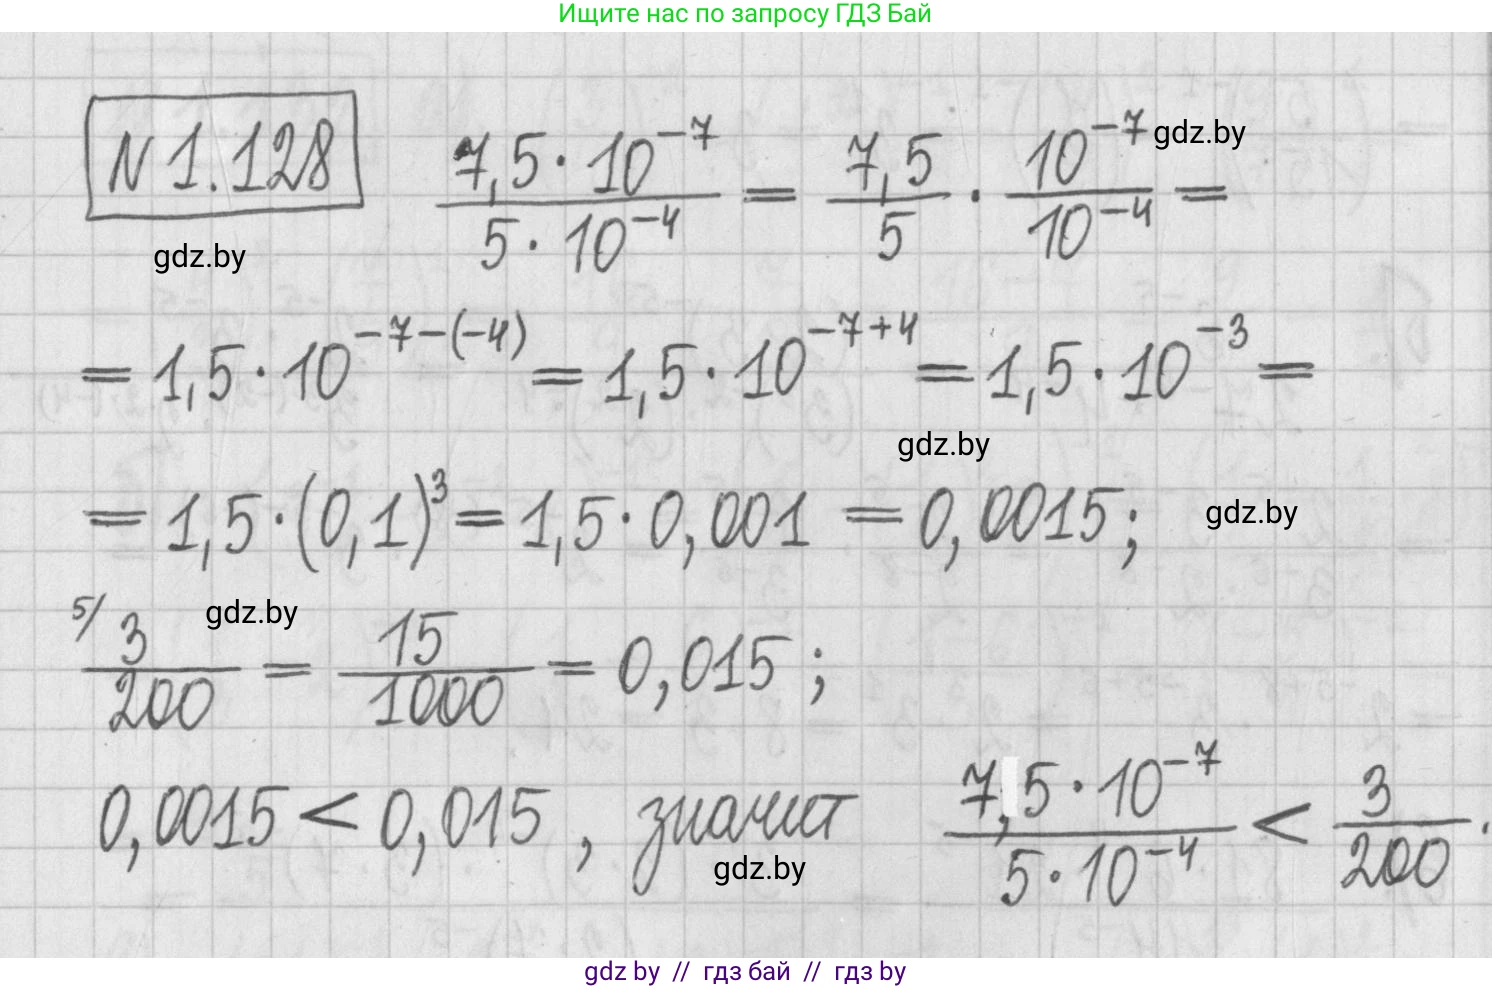 Ищите нас по запросу ГДЗ Бай
N 1.128 (7,5 · 10⁻⁷)/(5 · 10⁻⁴) = 7,5/5 · 10⁻⁷/10⁻⁴ = gdz.by
gdz.by
= 1,5 · 10⁻⁷⁻⁽⁻⁴⁾ = 1,5 · 10⁻⁷⁺⁴ = 1,5 · 10⁻³ =
gdz.by
= 1,5 · (0,1)³ = 1,5 · 0,001 = 0,0015; gdz.by
⁵/ 3/200 = 15/1000 = 0,015 ; gdz.by
0,0015 < 0,015 , значит (7,5 · 10⁻⁷)/(5 · 10⁻⁴) < 3/200 .
gdz.by
gdz by // гдз бай // гдз by